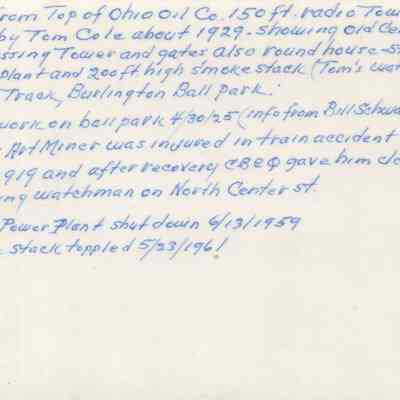 from Top of Ohio Oil Co. 150 ft. radio Tow
by Tom Cole about 1929. Showing old Ce
ssing Tower and gates also round house-s
plant and 200 ft high smoke stack (Tom's wa
Track, Burlington Ball park.
work on ball park 4/30/25 (info from Bill Schwa
Art Miner was injured in train accident
1919 and after recovery CB&Q gave him cl
ing watchman on North Center st.
Power Plant shut down 6/13/1959
stack toppled 5/23/1961